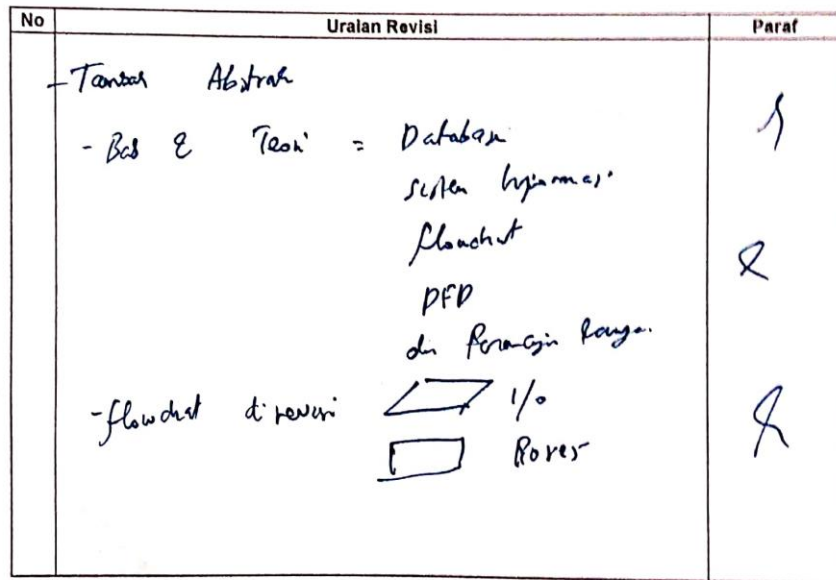 No Uraian Revisi Paraf
- Tambah Abstrak
- Bab 2 Teori = Database
Sistem Informasi
flowchart
DFD
dan
- flowchart direvisi I/O
Proses